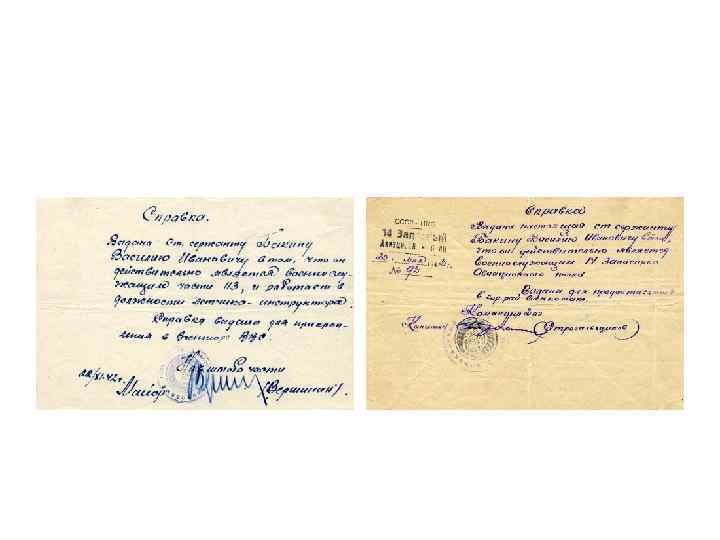 Справка.
Выдана ст. сержанту Бакину
Василию Ивановичу в том, что он
действительно является военнослу-
жащим части п.з, и работает в
должности летчика-инструктора.
Справка выдана для прикреп-
ления в военного
Нач. штаба части
22/XI-42г.
Майор (Вершинин).
Справка
СССР - НКО
14 Запасный
Авиацион.
20 мая
№ 93
Выдана настоящая ст. сержанту
Бакину Василию Ивановичу в том,
что он действительно является
военнослужащим 14 Запасного
Авиационного полка
Выдана для предоставления
в
Командир
Капитан